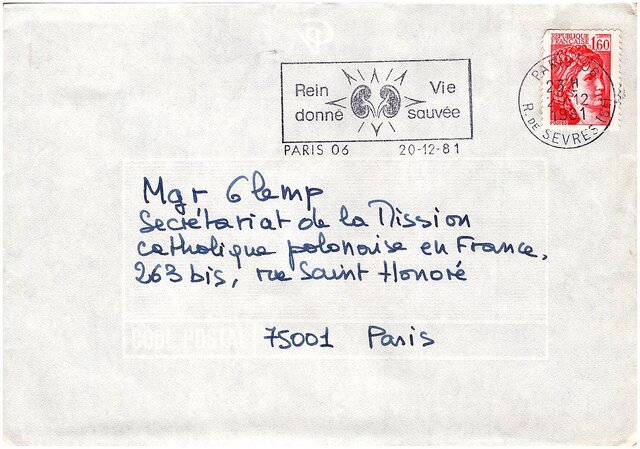 REPUBLIQUE
FRANCAISE
1,60
Rein Vie
donné sauvée
PARIS 06 20-12-81
R. DE SEVRES
1981
Mgr Glemp
Secrétariat de la Mission
catholique polonaise en France,
263 bis, rue Saint Honoré
75001 Paris